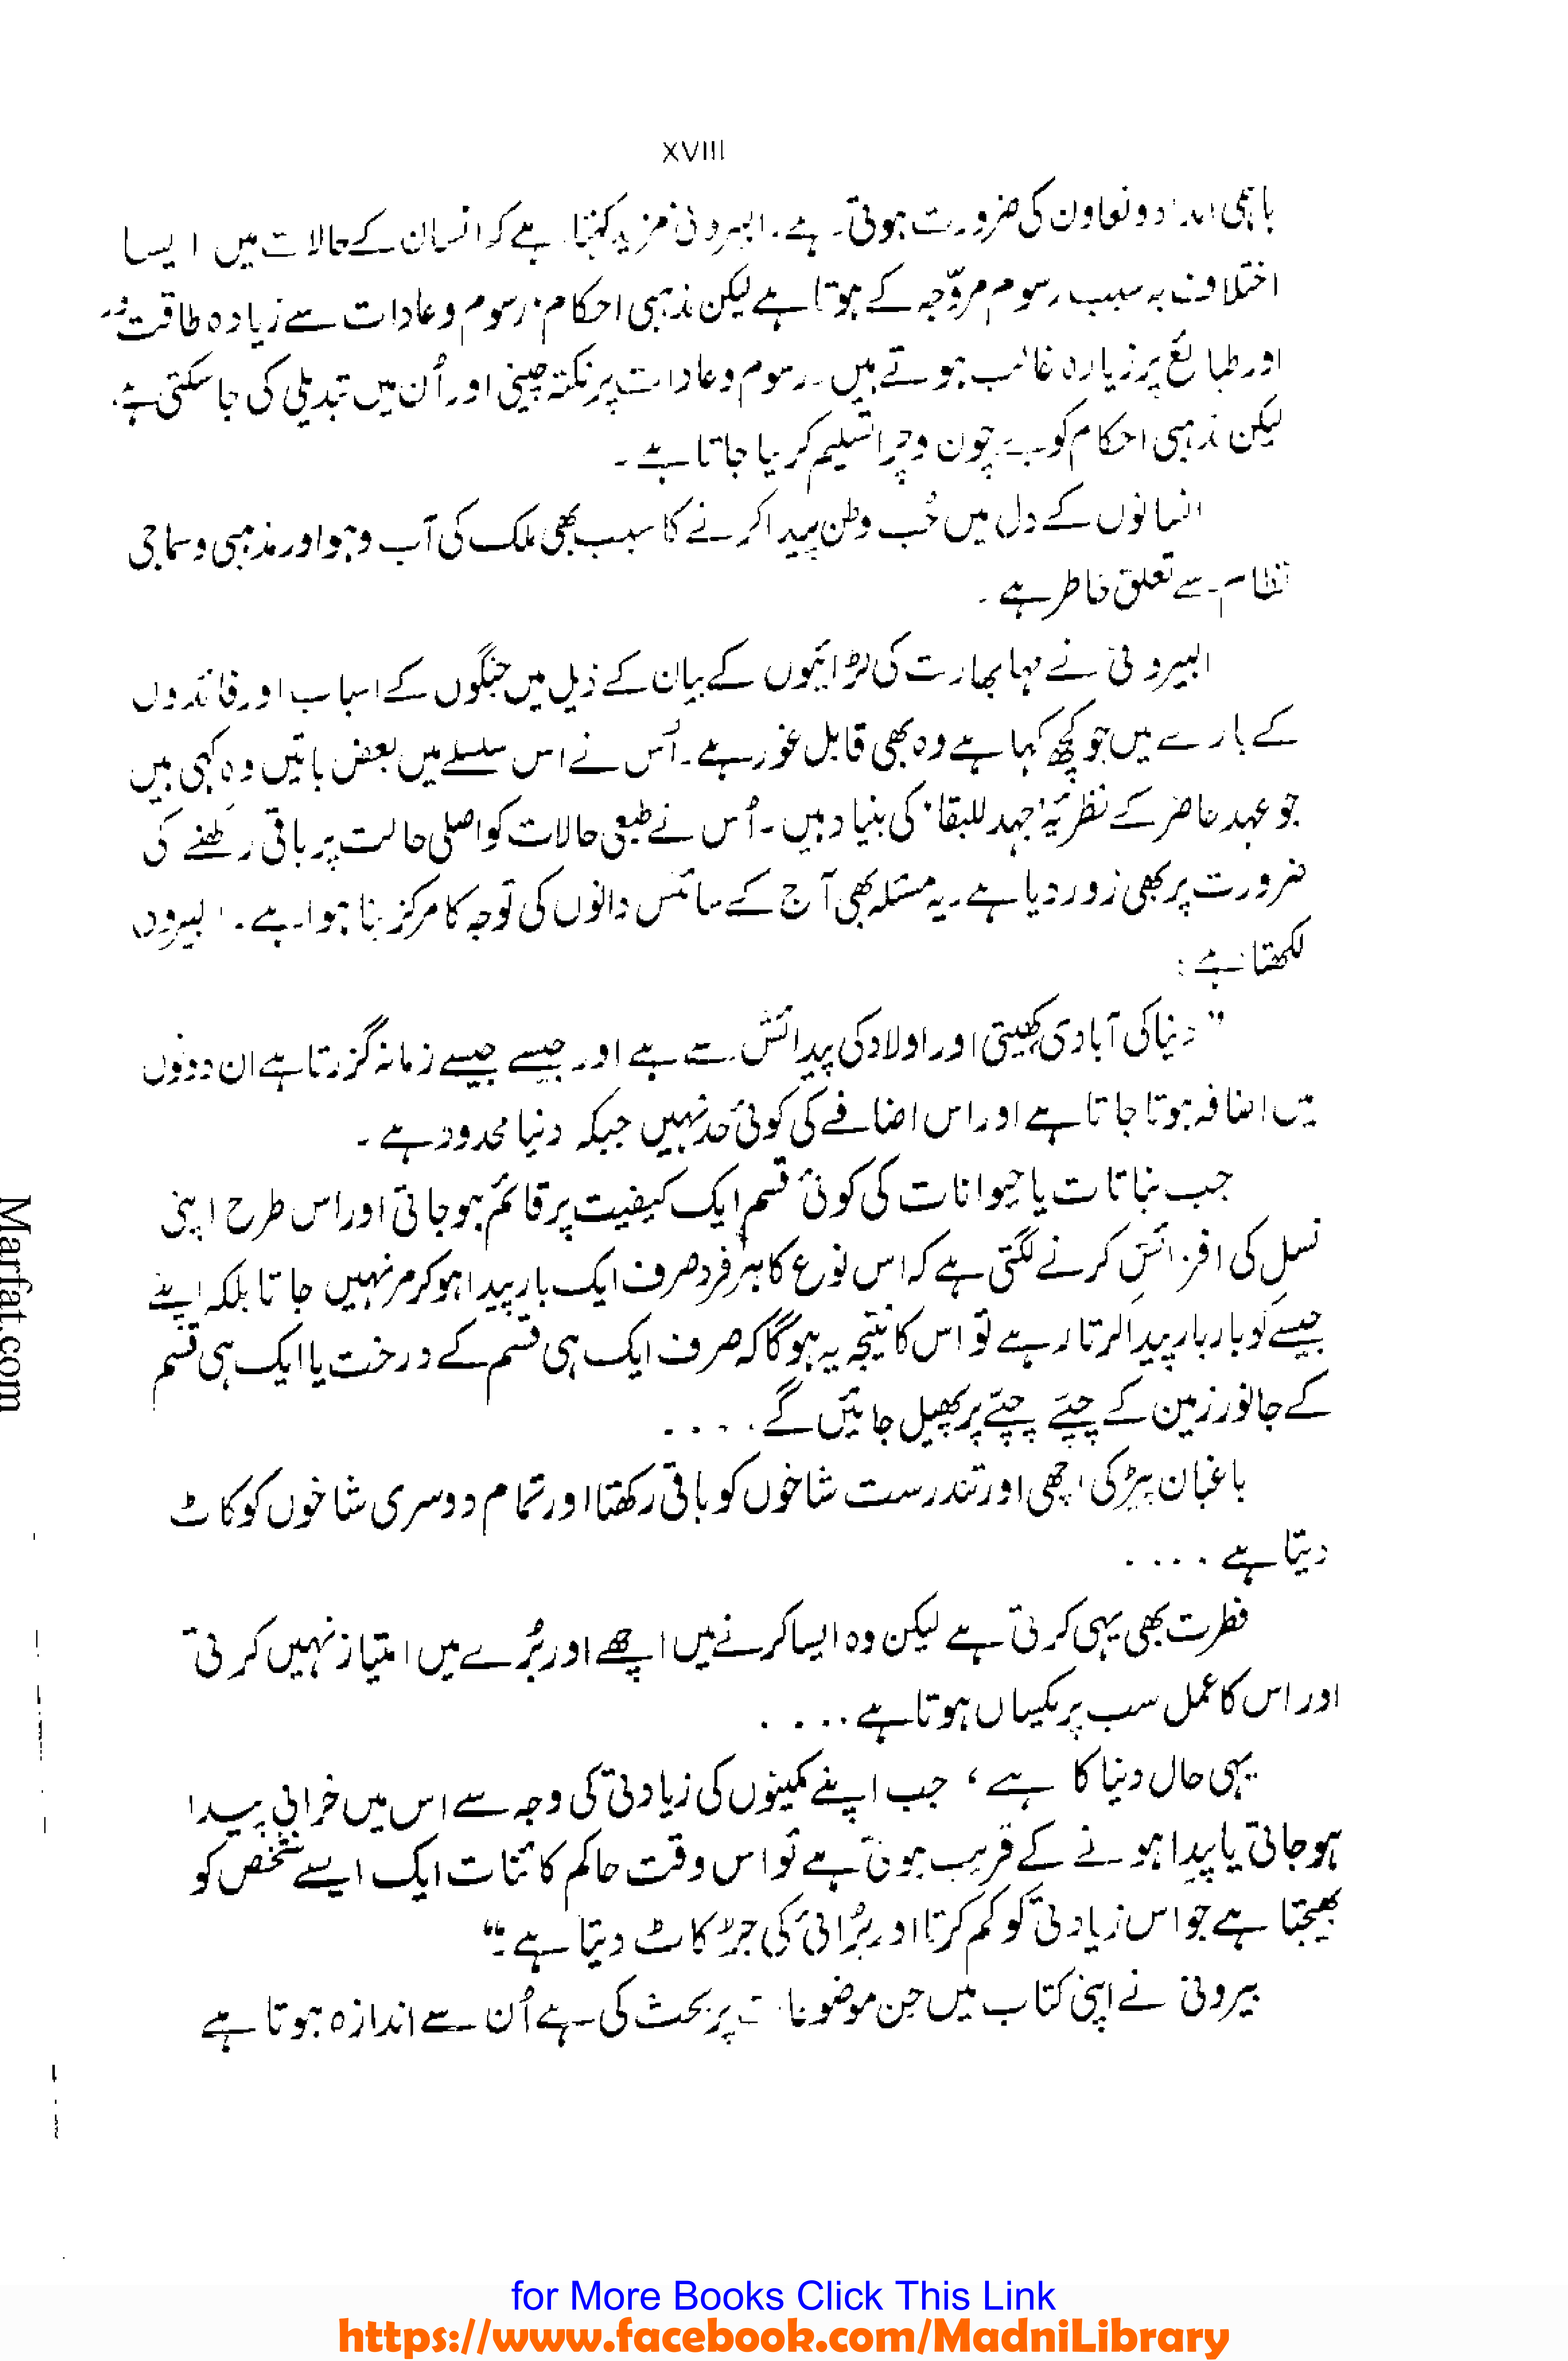 XVIII
باہمی امداد و تعاون کی ضرورت ہوتی ہے۔ البیرونی مزید کہتا ہے کہ انسان کے حالات میں ایسا
اختلاف بہ سبب رسوم مروّجہ کے ہوتا ہے لیکن مذہبی احکام، رسوم و عادات سے زیادہ طاقت ور
اور طبائع پر زیادہ غالب ہوتے ہیں۔ رسوم و عادات پر نکتہ چینی اور اُن میں تبدیلی کی جا سکتی ہے،
لیکن مذہبی احکام کو بے چون و چرا تسلیم کر لیا جاتا ہے۔
انسانوں کے دل میں حُب وطن پیدا کرنے کا سبب بھی ملک کی آب و ہوا اور مذہبی و سماجی
نظام سے تعلق خاطر ہے۔
البیرونی نے مہابھارت کی لڑائیوں کے بیان کے ذیل میں جنگوں کے اسباب اور فائدوں
کے بارے میں جو کچھ کہا ہے وہ بھی قابل غور ہے۔ اُس نے اس سلسلے میں بعض باتیں وہ کہی ہیں
جو عہد حاضر کے نظریۂ 'جہد للبقا' کی بنیاد ہیں۔ اُس نے طبعی حالات کو اصلی حالت پر باقی رکھنے کی
ضرورت پر بھی زور دیا ہے۔ یہ مسئلہ بھی آج کے سائنس دانوں کی توجہ کا مرکز بنا ہوا ہے۔ البیرونی
لکھتا ہے:
"دنیا کی آبادی کھیتی اور اولاد کی پیدائش سے ہے اور جیسے جیسے زمانہ گزرتا ہے ان دونوں
میں اضافہ ہوتا جاتا ہے اور اس اضافے کی کوئی حد نہیں جبکہ دنیا محدود ہے۔
جب نباتات یا حیوانات کی کوئی قسم ایک کیفیت پر قائم ہو جاتی اور اس طرح اپنی
نسل کی افزائش کرنے لگتی ہے کہ اس نوع کا ہر فرد صرف ایک بار پیدا ہو کر مر نہیں جاتا بلکہ اپنے
جیسے کو بار بار پیدا کرتا رہے تو اس کا نتیجہ یہ ہوگا کہ صرف ایک ہی قسم کے درخت یا ایک ہی قسم
کے جانور زمین کے چپے چپے پر پھیل جائیں گے . . . .
باغبان پیڑ کی اچھی اور تندرست شاخوں کو باقی رکھتا اور تمام دوسری شاخوں کو کاٹ
دیتا ہے . . . .
فطرت بھی یہی کرتی ہے لیکن وہ ایسا کرنے میں اچھے اور بُرے میں امتیاز نہیں کرتی
اور اس کا عمل سب پر یکساں ہوتا ہے . . . .
یہی حال دنیا کا ہے، جب اپنے مکینوں کی زیادتی کی وجہ سے اس میں خرابی پیدا
ہو جاتی یا پیدا ہونے کے قریب ہوتی ہے تو اس وقت حاکم کائنات ایک ایسے شخص کو
بھیجتا ہے جو اس زیادتی کو کم کرتا اور بُرائی کی جڑ کاٹ دیتا ہے۔"
بیرونی نے اپنی کتاب میں جن موضوعات پر بحث کی ہے اُن سے اندازہ ہوتا ہے
Marfat.com
for More Books Click This Link
https://www.facebook.com/MadniLibrary